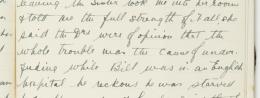 leaving the Sister took me into her room
& told me the full strength of it all, she
said the Drs were of opinion that the
whole trouble was the cause of under-
feeding while Bill was in an English
hospital, he reckons he was starved